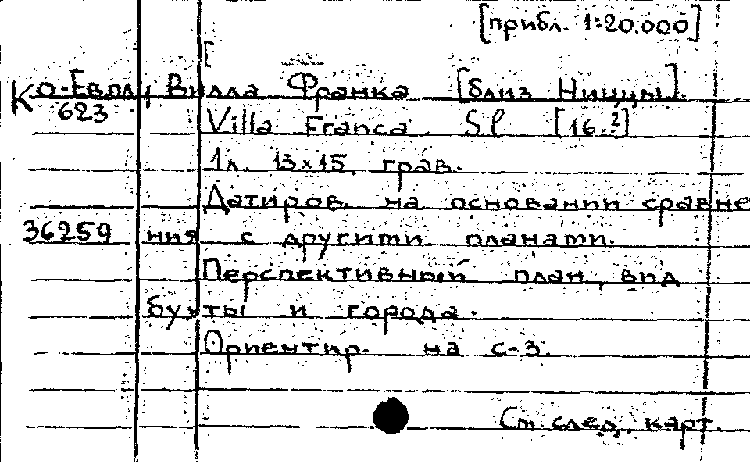 [прибл. 1:20.000]
Ко-Евпл, Вилла Франка [близ Ниццы].
623 Villa Franca. Sl [16.?]
1л. 13х15, грав.
Датиров. на основании сравне
36259 ния с другими планами.
Перспективный план, вид
бухты и города.
Ориентир. на с-з.
См след. карт.